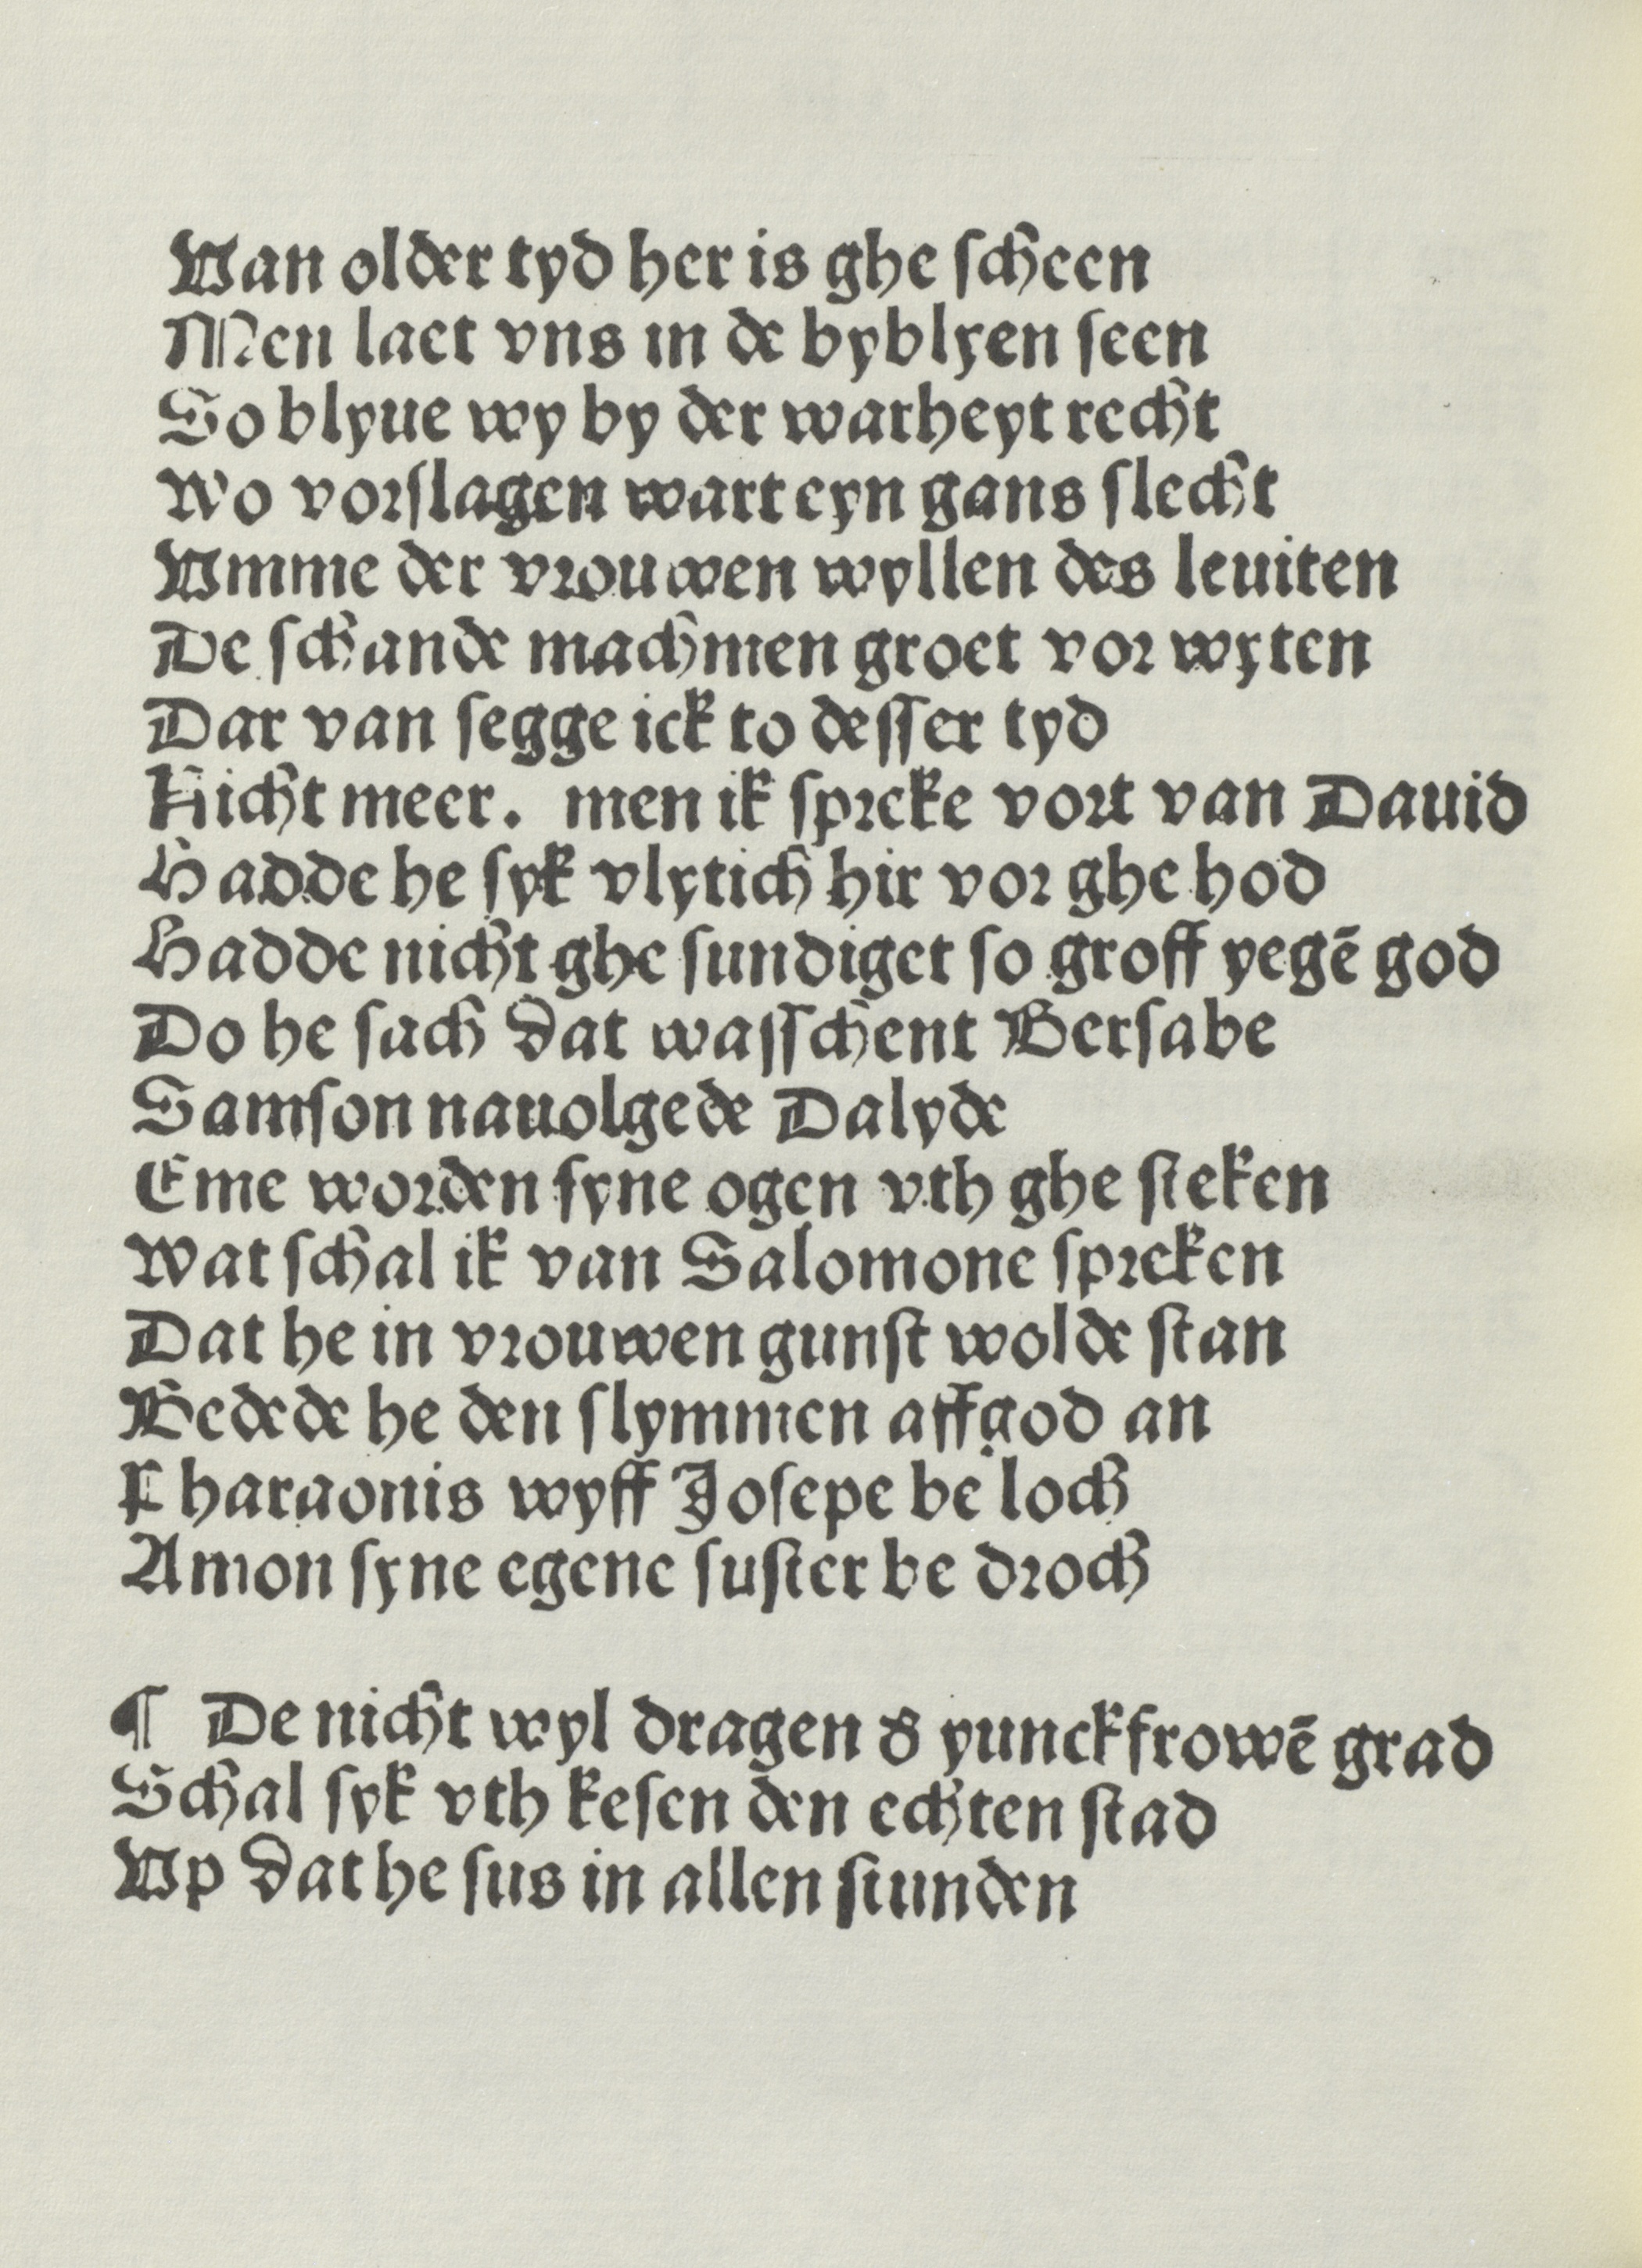 Van older tyd her is ghe ſcheen
Men laet vns in de byblyen ſeen
So blyue wy by der warheyt recht
Wo vorſlagen wart eyn gans ſlecht
Vmme der vrouwen wyllen des leuiten
De ſchande machmen groet vor wyten
Dar van ſegge ick to deſſer tyd
Nicht meer. men ik ſpreke vort van Dauid
Hadde he ſyk vlytich hir vor ghe hod
Hadde nicht ghe ſundiget ſo groff yegē god
Do he ſach dat waſſchent Berſabe
Samſon nauolgede Dalyde
Eme worden ſyne ogen vth ghe ſteken
Wat ſchal ik van Salomone ſpreken
Dat he in vrouwen gunſt wolde ſtan
Bedede he den ſlymmen affgod an
Pharaonis wyff Joſepe be loch
Amon ſyne egene ſuſter be droch
¶ De nicht wyl dragen d̕ yunckfrowē grad
Schal ſyk vth keſen den echten ſtad
Vp dat he ſus in allen ſtunden